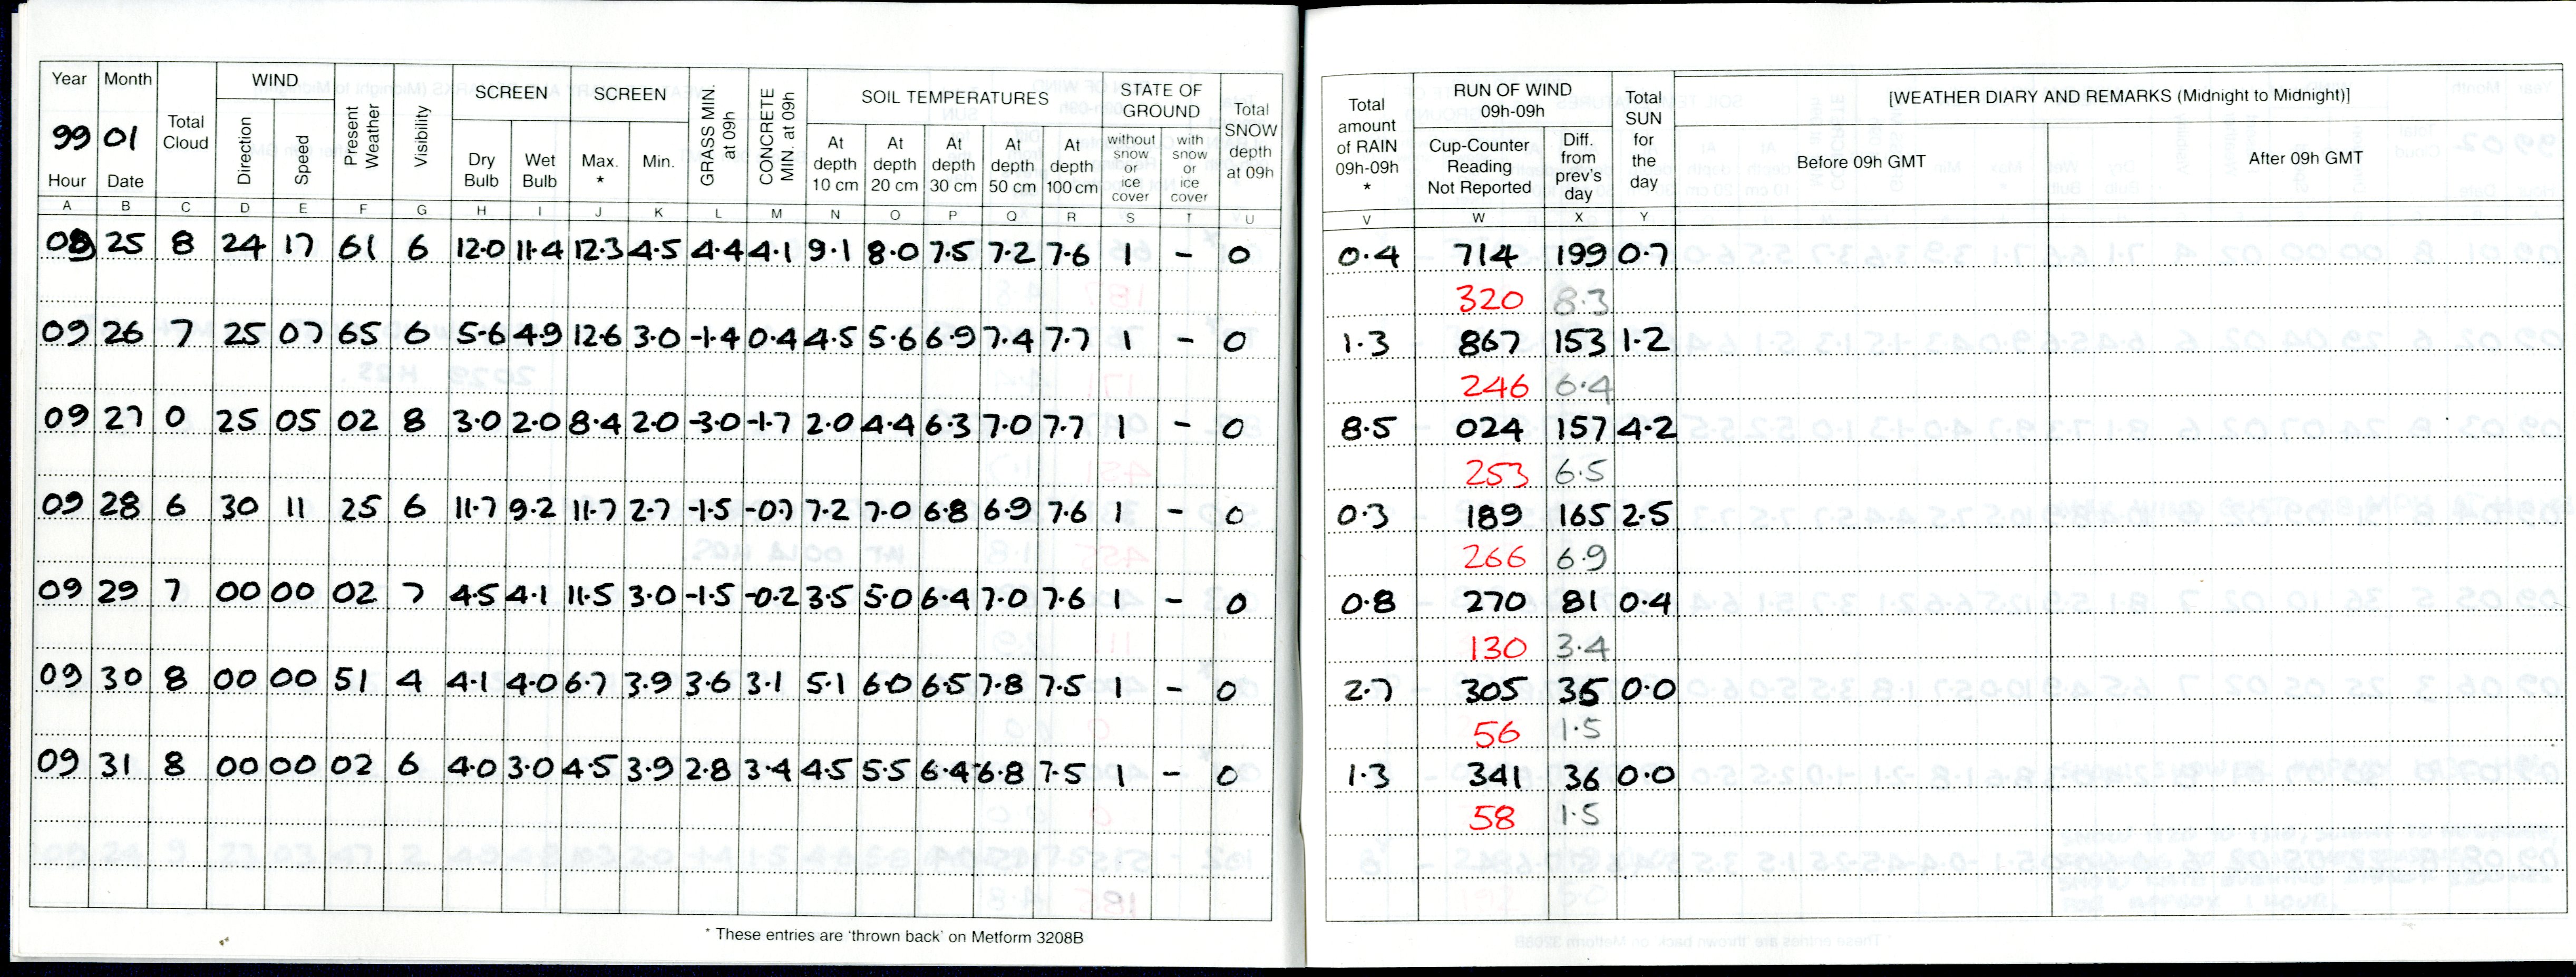 Year Month Total Cloud WIND Direction Speed Present Weather Visibility SCREEN Dry Bulb Wet Bulb SCREEN Max. * Min. GRASS MIN. at 09h CONCRETE MIN. at 09h SOIL TEMPERATURES At depth 10 cm At depth 20 cm At depth 30 cm At depth 50 cm At depth 100 cm STATE OF GROUND without snow or ice cover with snow or ice cover Total SNOW depth at 09h
99 01
Hour Date
A B C D E F G H I J K L M N O P Q R S T U
09 25 8 24 17 61 6 12.0 11.4 12.3 4.5 4.4 4.1 9.1 8.0 7.5 7.2 7.6 1 - 0
09 26 7 25 07 65 6 5.6 4.9 12.6 3.0 -1.4 0.4 4.5 5.6 6.9 7.4 7.7 1 - 0
09 27 0 25 05 02 8 3.0 2.0 8.4 2.0 -3.0 -1.7 2.0 4.4 6.3 7.0 7.7 1 - 0
09 28 6 30 11 25 6 11.7 9.2 11.7 2.7 -1.5 -0.7 7.2 7.0 6.8 6.9 7.6 1 - 0
09 29 7 00 00 02 7 4.5 4.1 11.5 3.0 -1.5 -0.2 3.5 5.0 6.4 7.0 7.6 1 - 0
09 30 8 00 00 51 4 4.1 4.0 6.7 3.9 3.6 3.1 5.1 6.0 6.5 7.8 7.5 1 - 0
09 31 8 00 00 02 6 4.0 3.0 4.5 3.9 2.8 3.4 4.5 5.5 6.4 6.8 7.5 1 - 0
* These entries are 'thrown back' on Metform 3208B
Total amount of RAIN 09h-09h * RUN OF WIND 09h-09h Cup-Counter Reading Not Reported Diff. from prev's day Total SUN for the day [WEATHER DIARY AND REMARKS (Midnight to Midnight)]
Before 09h GMT After 09h GMT
V W X Y
0.4 714 199 0.7
320 8.3
1.3 867 153 1.2
246 6.4
8.5 024 157 4.2
253 6.5
0.3 189 165 2.5
266 6.9
0.8 270 81 0.4
130 3.4
2.7 305 35 0.0
56 1.5
1.3 341 36 0.0
58 1.5